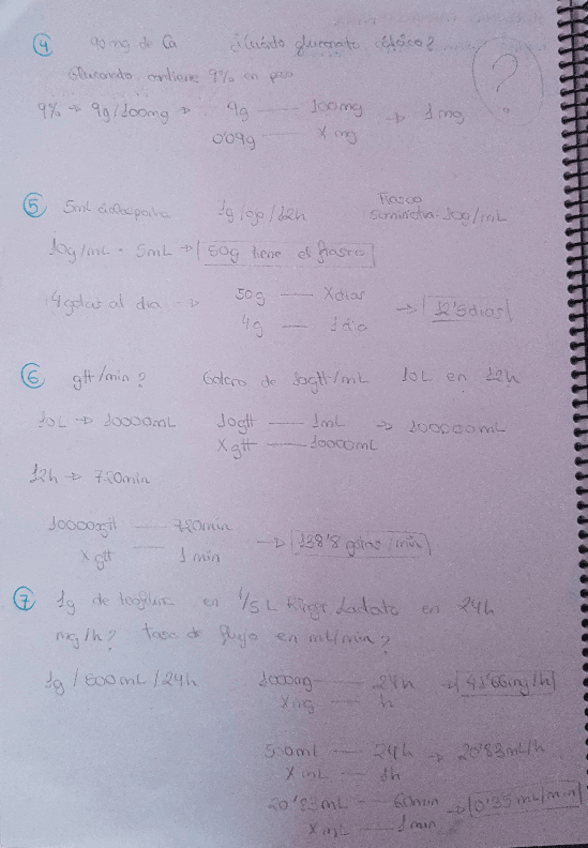 ④ 90mg de Ca ¿Cuánto gluconato cálcico?
Gluconato contiene 9% en peso
9% => 9g/100mg -> 9g — 100mg -> 1mg
0'09g — X mg
?
⑤ 5mL 1g/ojo/12h Frasco
suministra: 10g/mL
10g/mL · 5mL -> 50g tiene el frasco
4 gotas al día -> 50g — X días -> 12'5 días
4g — 1 día
⑥ gtt/min? Gotero de 10gtt/mL 10L en 12h
10L -> 10000mL 10gtt — 1mL -> 100000mL
X gtt — 10000mL
12h -> 720min
100000gtt — 720min -> 138'8 gotas/min
X gtt — 1 min
⑦ 1g de teofilina en 1/5 L Ringer Lactato en 24h
mg/h? tasa de flujo en mL/min?
1g/500mL/24h 1000mg — 24h -> 41'66mg/h
X mg — h
500mL — 24h -> 20'83mL/h
X mL — 1h
20'83mL — 60min -> 0'35 mL/min
X mL — 1 min